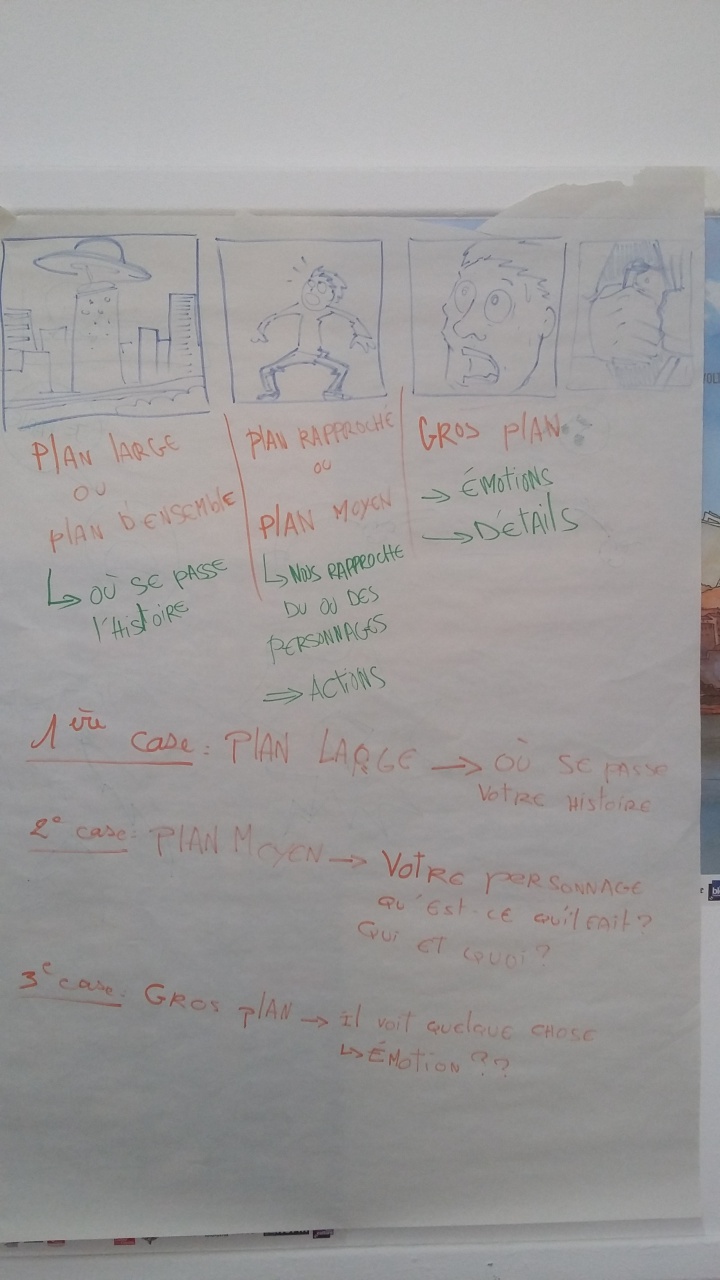 PLAN LARGE
OU
PLAN D'ENSEMBLE
↳ OÙ SE PASSE
l'HistOIRE
PLAN RAPPROCHÉ
OU
PLAN MOYEN
↳ NOUS RAPPROCHE
DU OU DES
PERSONNAGES
⇒ ACTIONS
GROS PLAN
→ ÉMOTIONS
→ DÉTAILS
1ère case : PLAN LARGE → OÙ SE PASSE
VOTRE HISTOIRE
2e case : PLAN MOYEN → VOTRE PERSONNAGE
QU'EST-CE QU'IL FAIT ?
QUI ET QUOI ?
3e case : GROS PLAN → il voit QUELQUE CHOSE
↳ ÉMOTION ??